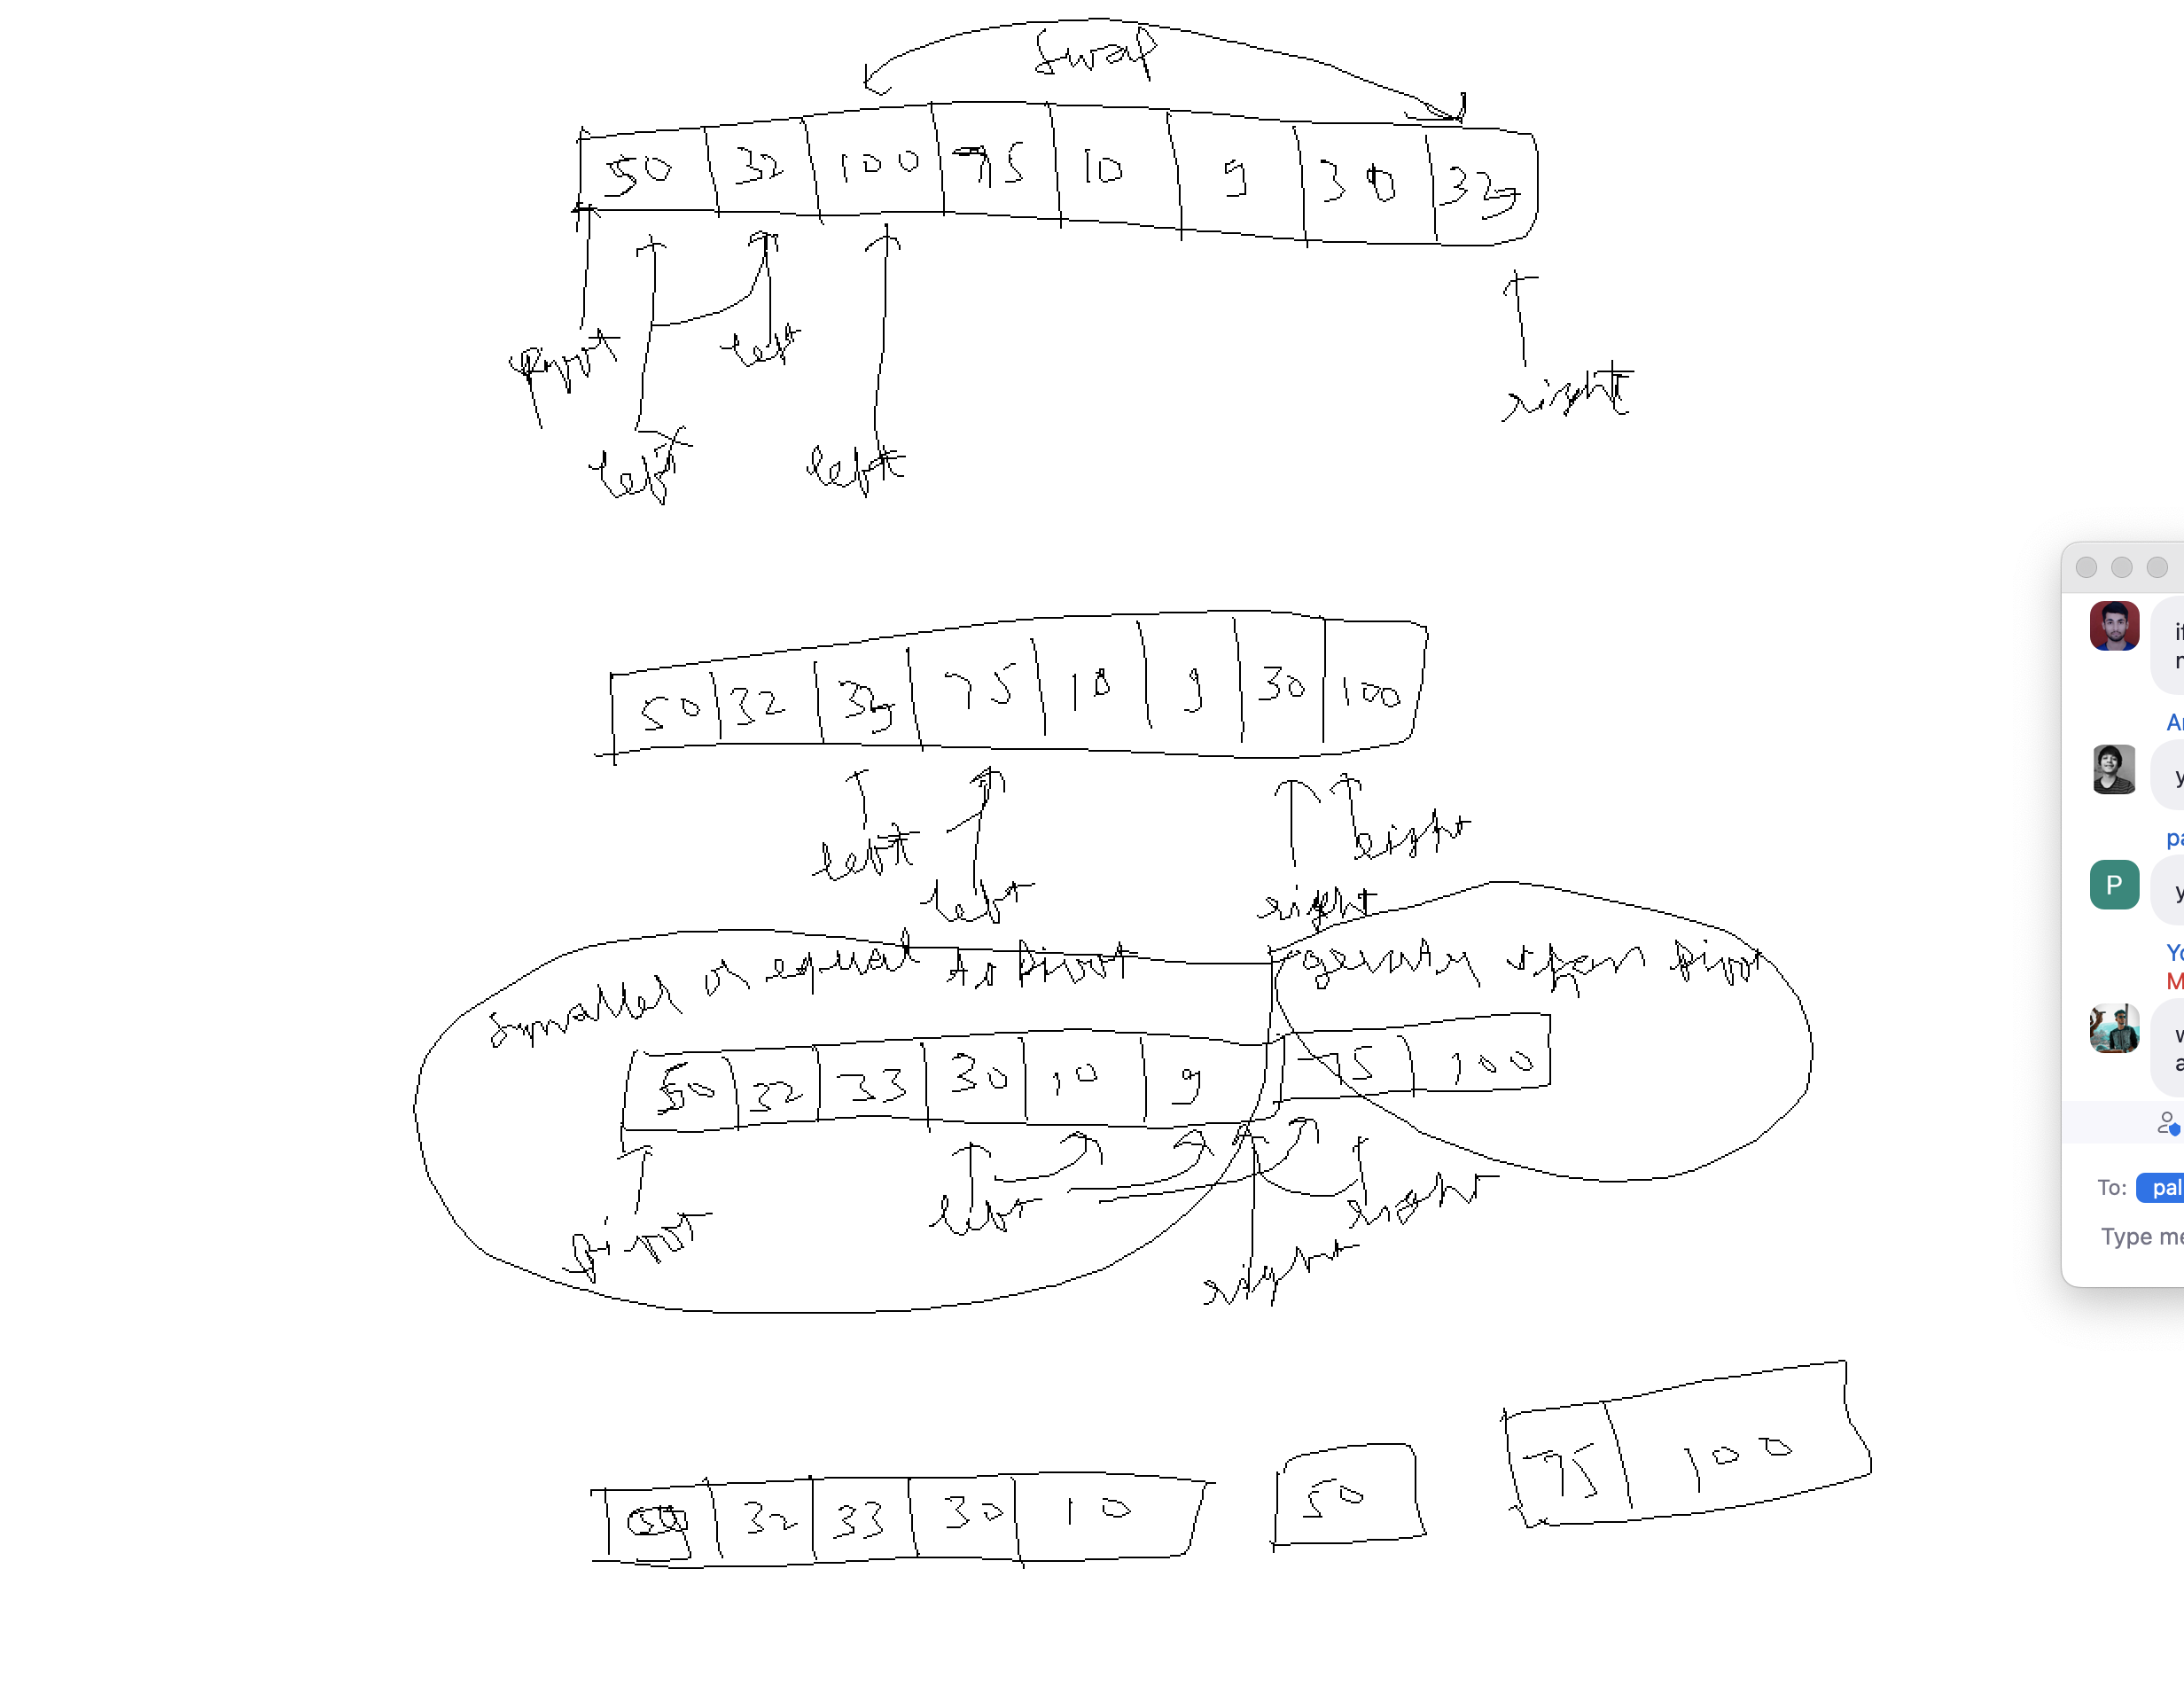 swap
50 32 100 75 10 9 30 33
pivot left
left left
right
50 32 33 75 10 9 30 100
left right
left right
smaller or equal to pivot
greater than pivot
50 32 33 30 10 9 75 100
pivot left right
right
32 33 30 10
50
75 100
P
To: pal
Type me